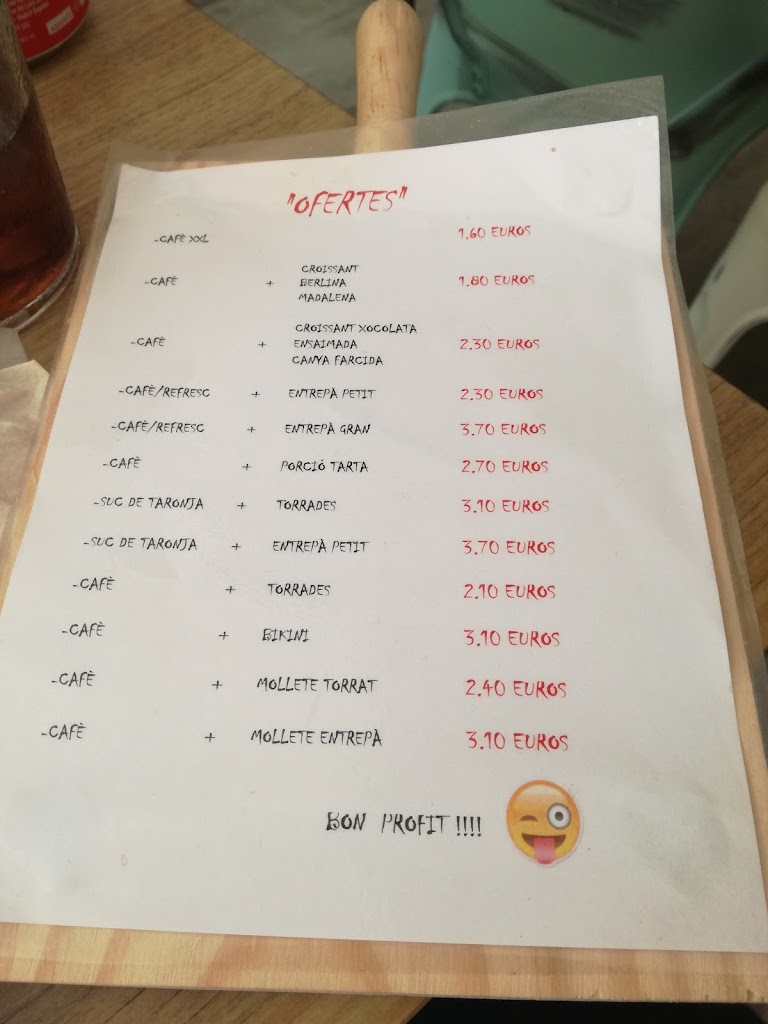 "OFERTES"
-CAFÈ XXL 1.60 EUROS
CROISSANT
-CAFÈ + BERLINA 1.80 EUROS
MADALENA
CROISSANT XOCOLATA
-CAFÈ + ENSAIMADA 2.30 EUROS
CANYA FARCIDA
-CAFÈ/REFRESC + ENTREPÀ PETIT 2.30 EUROS
-CAFÈ/REFRESC + ENTREPÀ GRAN 3.70 EUROS
-CAFÈ + PORCIÓ TARTA 2.70 EUROS
-SUC DE TARONJA + TORRADES 3.10 EUROS
-SUC DE TARONJA + ENTREPÀ PETIT 3.70 EUROS
-CAFÈ + TORRADES 2.10 EUROS
-CAFÈ + BIKINI 3.10 EUROS
-CAFÈ + MOLLETE TORRAT 2.40 EUROS
-CAFÈ + MOLLETE ENTREPÀ 3.10 EUROS
BON PROFIT !!!!